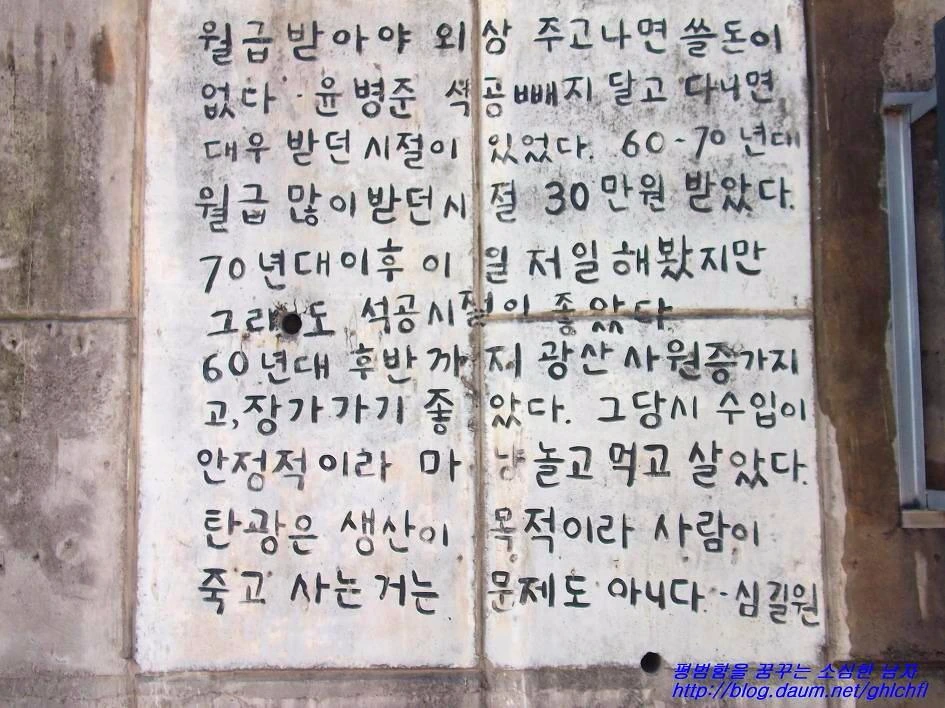 월급 받아야 외상 주고나면 쓸돈이
없다 · 윤병준 석공빼지 달고 다니면
대우 받던 시절이 있었다. 60-70년대
월급 많이받던시절 30만원 받았다.
70년대이후 이일 저일해봤지만
그래도 석공시절이 좋았다
60년대 후반까지 광산사원증가지
고,장가가기 좋았다. 그당시 수입이
안정적이라 마냥놀고먹고 살았다.
탄광은 생산이 목적이라 사람이
죽고 사는거는 문제도 아니다··심길원
평범함을 꿈꾸는 소심한 남자
http://blog.daum.net/ghlchfl